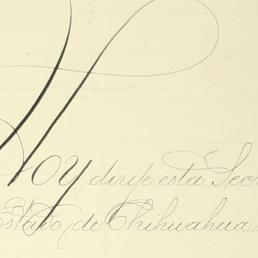 Hoy dirije esta Secr
Estado de Chihuahua,